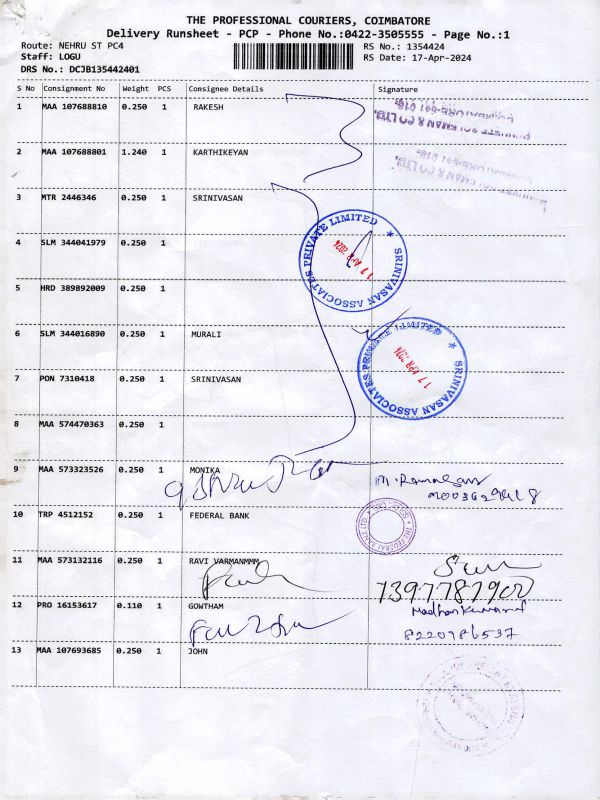 THE PROFESSIONAL COURIERS, COIMBATORE
Delivery Runsheet - PCP - Phone No.:0422-3505555 - Page No.:1
Route: NEHRU ST PC4
RS No.: 1354424
Staff: LOGU
RS Date: 17-Apr-2024
DRS No.: DCJB135442401
S No Consignment No Weight PCS Consignee Details Signature
1 MAA 107688810 0.250 1 RAKESH
2 MAA 107688801 1.240 1 KARTHIKEYAN
3 MTR 2446346 0.250 1 SRINIVASAN
SRINIVASAN ASSOCIATES PRIVATE LIMITED
17 APR 2024
4 SLM 344041979 0.250 1
5 HRD 389892009 0.250 1
6 SLM 344016890 0.250 1 MURALI
SRINIVASAN ASSOCIATES PRIVATE LIMITED
17 APR 2024
7 PON 7310418 0.250 1 SRINIVASAN
8 MAA 574470363 0.250 1
9 MAA 573323526 0.250 1 MONIKA
10 TRP 4512152 0.250 1 FEDERAL BANK
THE FEDERAL BANK LTD
11 MAA 573132116 0.250 1 RAVI VARMANMMM
7397787900
12 PRO 16153617 0.110 1 GOWTHAM
8220786537
13 MAA 107693685 0.250 1 JOHN